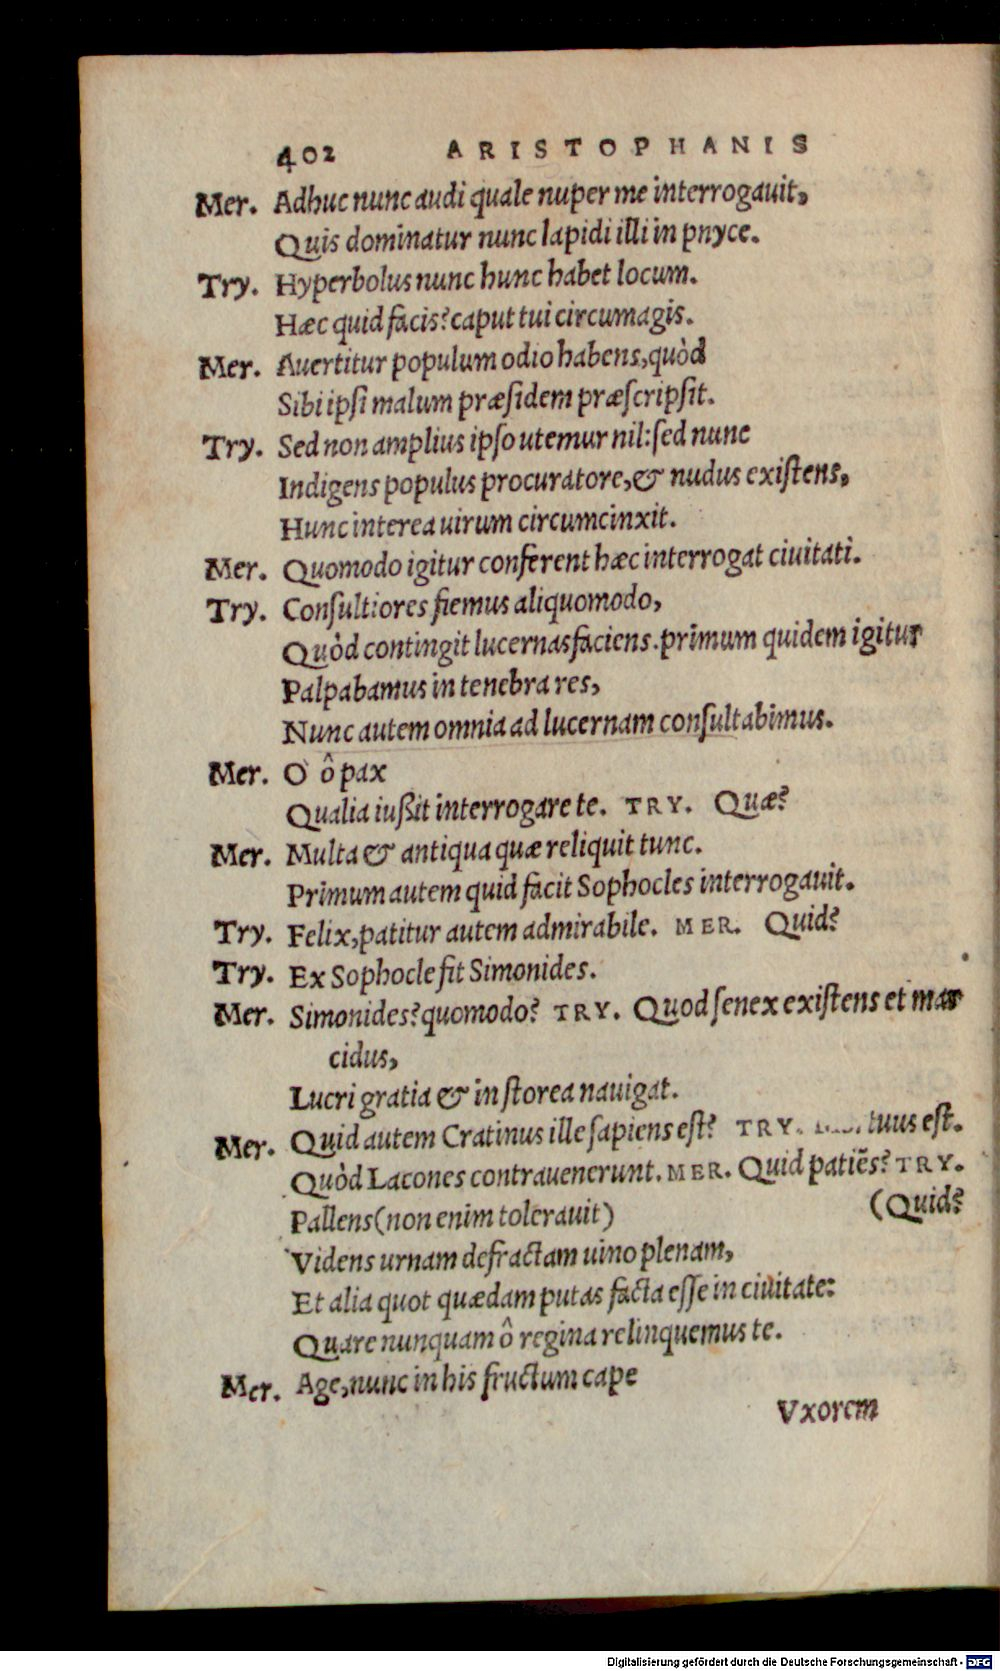 402 ARISTOPHANIS
Mer. Adhuc nunc audi quale nuper me interrogauit,
Quis dominatur nunc lapidi illi in pnyce.
Try. Hyperbolus nunc hunc habet locum.
Hæc quid facis? caput tui circumagis.
Mer. Auertitur populum odio habens, quòd
Sibi ipsi malum præſidem præſcripſit.
Try. Sed non amplius ipſo utemur nil: ſed nunc
Indigens populus procuratore, & nudus exiſtens,
Hunc interea uirum circumcinxit.
Mer. Quomodo igitur conferent hæc interrogat ciuitati.
Try. Conſultiores fiemus aliquomodo,
Quòd contingit lucernas faciens. primum quidem igitur
Palpabamus in tenebra res,
Nunc autem omnia ad lucernam conſultabimus.
Mer. O ô pax
Qualia iußit interrogare te. TRY. Quæ?
Mer. Multa & antiqua quæ reliquit tunc.
Primum autem quid facit Sophocles interrogauit.
Try. Felix, patitur autem admirabile. MER. Quid?
Try. Ex Sophocle fit Simonides.
Mer. Simonides? quomodo? TRY. Quod ſenex exiſtens et mar
cidus,
Lucri gratia & in ſtorea nauigat.
Mer. Quid autem Cratinus ille ſapiens eſt? TRY. tuus eſt.
Quòd Lacones contrauenerunt. MER. Quid patiẽs? TRY.
Pallens (non enim tolerauit) (Quid?
Videns urnam defractam uino plenam,
Et alia quot quædam putas facta eſſe in ciuitate:
Quare nunquam ô regina relinquemus te.
Mer. Age, nunc in his fructum cape
Vxorem
Digitalisierung gefördert durch die Deutsche Forschungsgemeinschaft - DFG